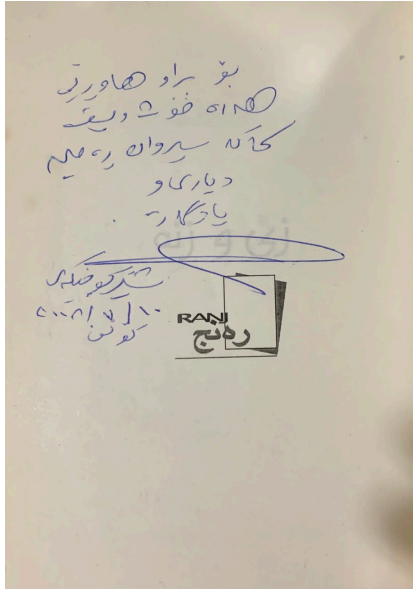 بۆ براو هاوڕێی
هەرە خۆشەویست
کاکە سیروان ڕەحیم
دیاری و
یادگارت
شێرکۆ بێکەس
٢٠٠٨/٧/١٠
RANJ
ڕەنج